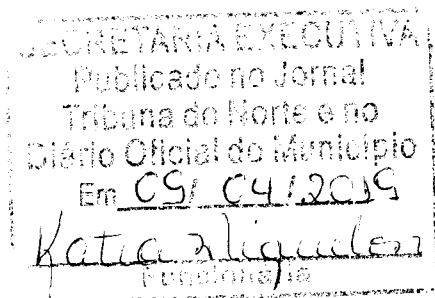 SECRETARIA EXECUTIVA
Publicado no Jornal
Tribuna do Norte e no
Diário Oficial do Município
Em 09/04/2019
Katia
Funcionária